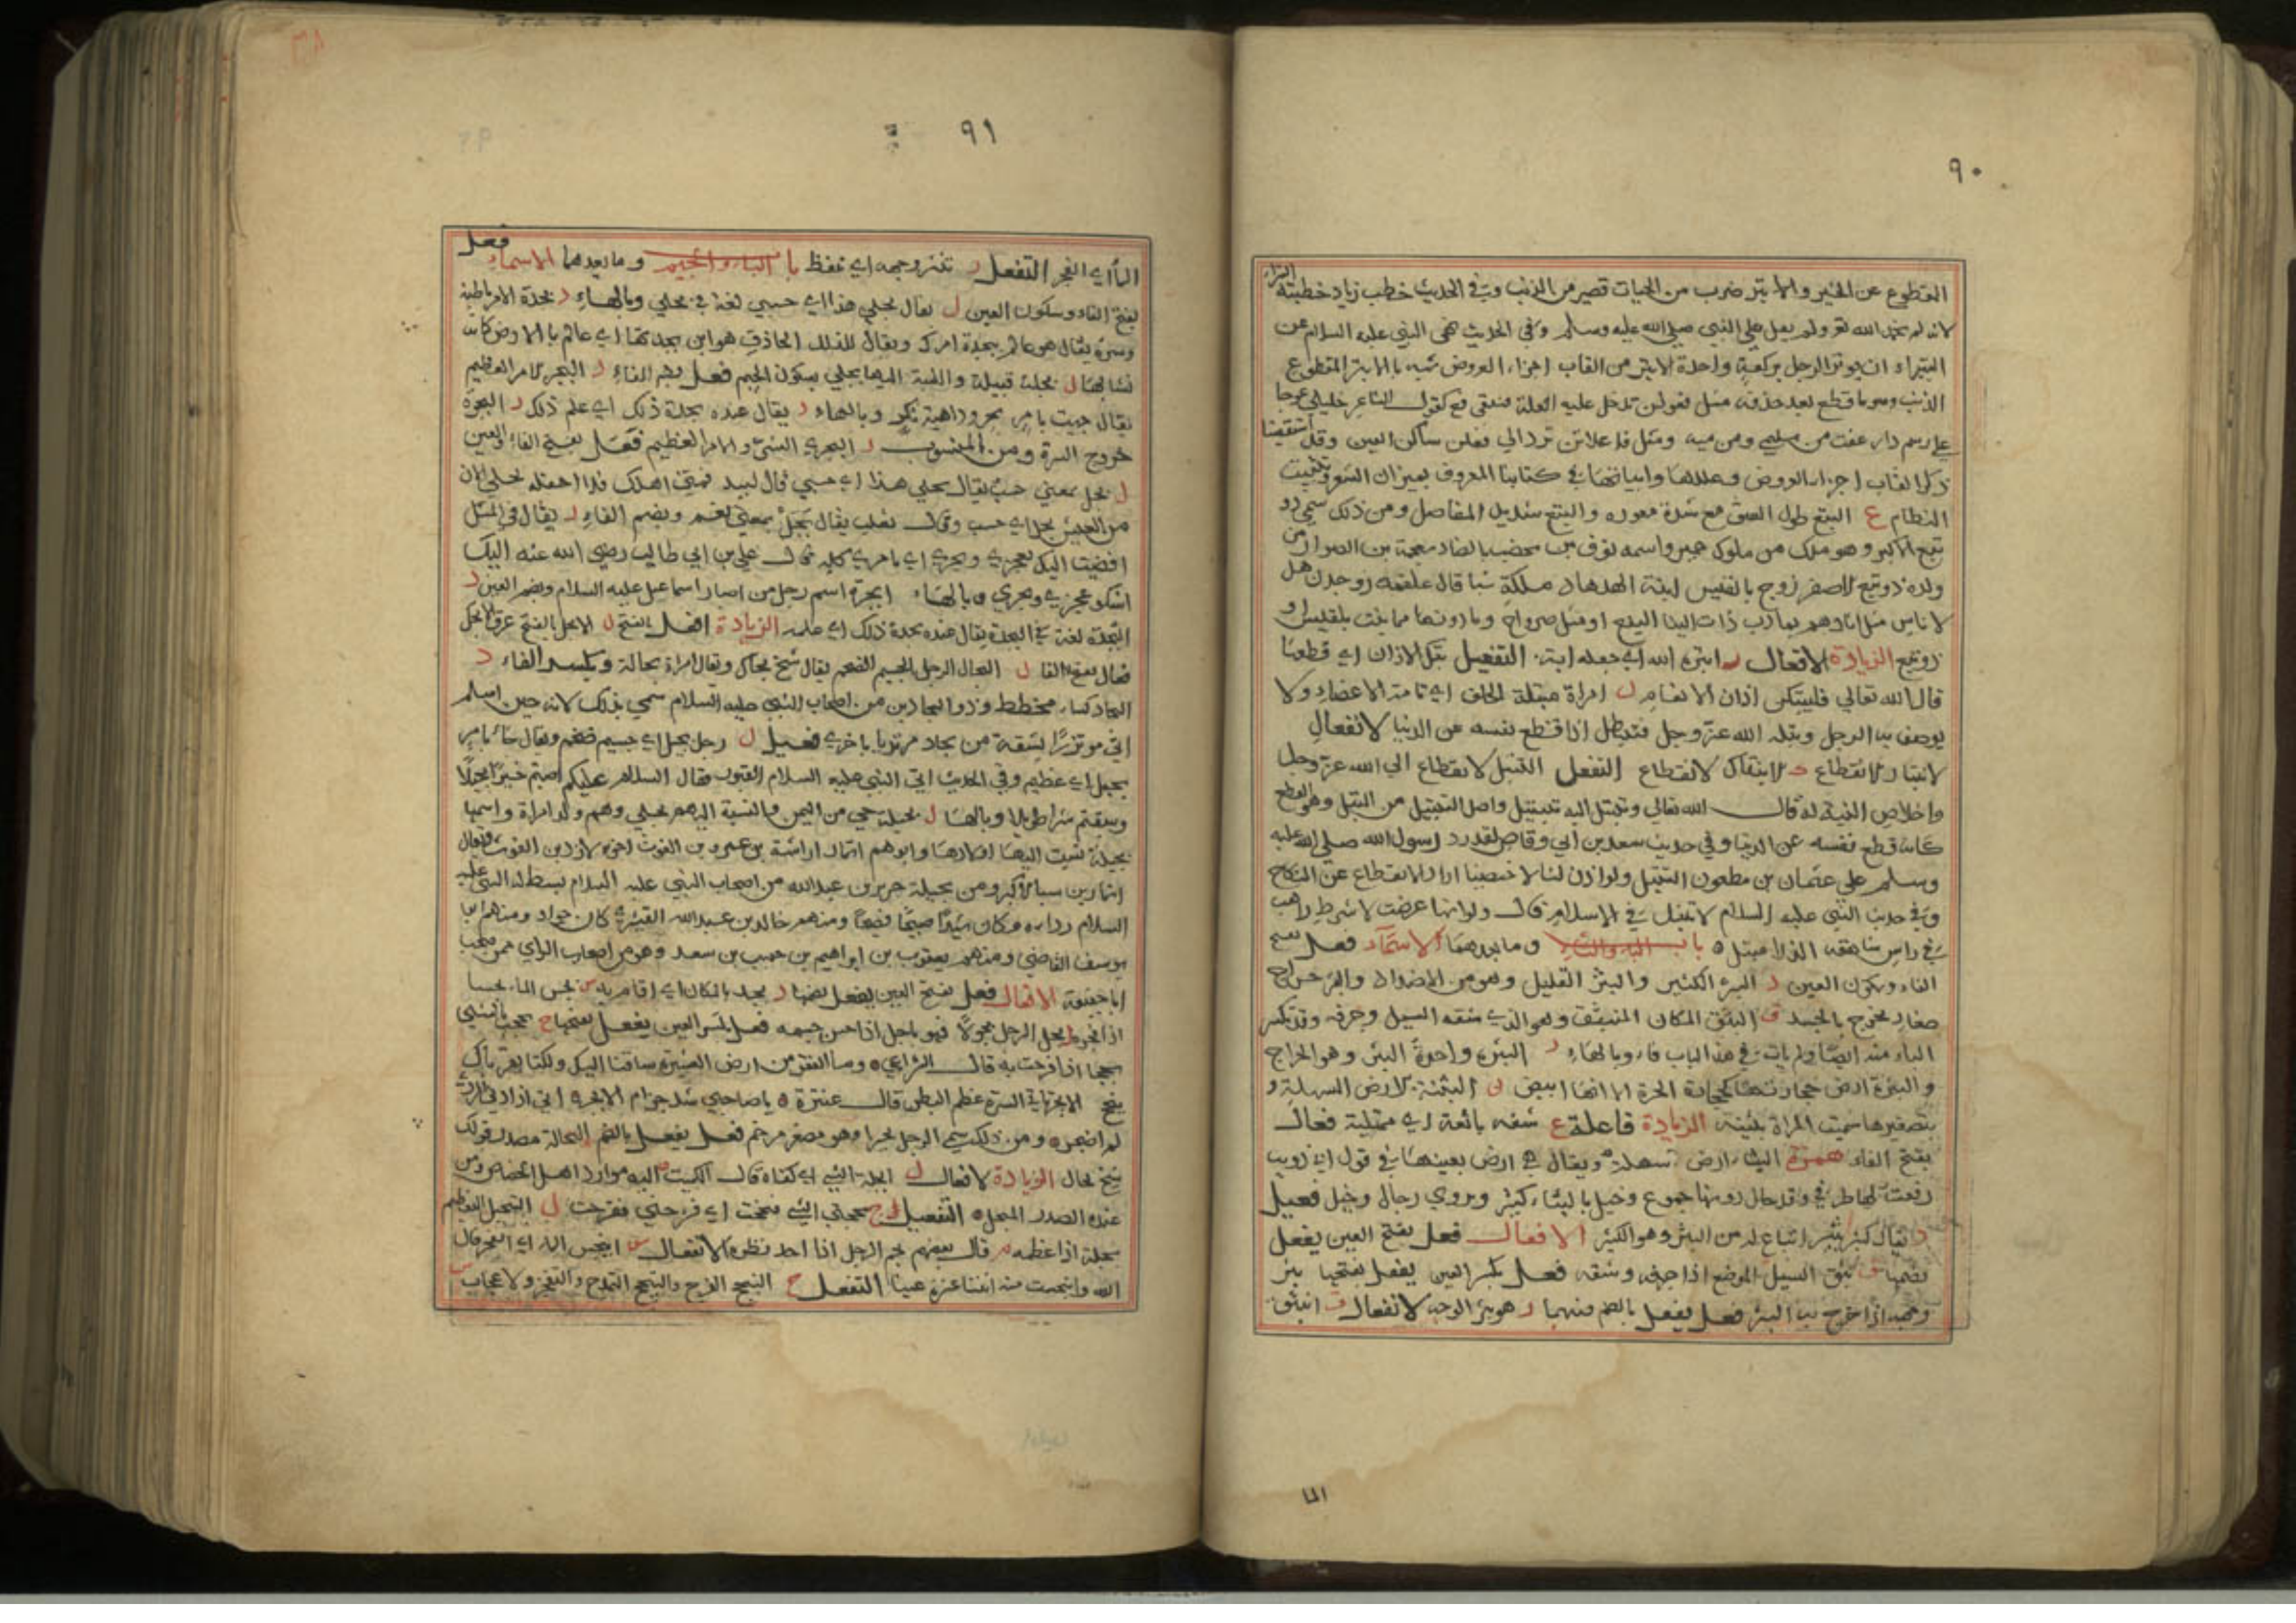 ٩٠
المقطوع عن الخير والابتر ضرب من الحيات قصير من الذنب وفي الحديث خطب زياد خطبته البتراء
لانه لم يحمد الله تع ولم يصل على النبي صلى الله عليه وسلم وفي الحديث نهى النبي عليه السلام عن
البتيراء ان يوتر الرجل بركعة واحدة الابتر من القاب اجزاء العروض شبه بالابتر المقطوع
الذنب وهو ما قطع بعد حذفه مثل فعولن تدخل عليه العلة فيبقى فع كقول الشاعر خليلي عوجا
على رسم دار عفت من سليمى ومن ميه ومثل فاعلاتن ترد الى فعلن ساكن العين وقد استقصينا
ذكر القاب اجزاء العروض وعللها وابياتها في كتابنا المعروف بميزان الشعر وتثبيت
النظام ع البتع طول العنق مع شدة مغرزه والبتع شديد المفاصل ومن ذلك سمي ذو
بتع الاكبر وهو ملك من ملوك حمير واسمه نوف بن يحضب بالضاد معجمة بن الصوار من
ولده ذو بتع الاصغر زوج بلقيس ابنة الهدهاد ملكة سبا قال علقمة ذو جدن هل
لاناس مثل اثارهم بمارب ذات البنا اليفع او مثل صرواح وما دونها مما بنت بلقيس او
ذو بتع الزيادة الافعال ر ابتره الله اي جعله ابتر التفعيل بتك الاذان اي قطعها
قال الله تعالى فليبتكن اذان الانعام ل امراة مبتلة الخلق اي تامة الاعضاء ولا
يوصف به الرجل وبتله الله عز وجل فتبتل اذا قطع نفسه عن الدنيا الانفعال
الانبتار الانقطاع ك الانبتاك الانقطاع التفعل التبتل الانقطاع الى الله عز وجل
واخلاص النية له قال الله تعالى وتبتل اليه تبتيلا واصل التبتل من البتل وهو القطع
كانه قطع نفسه عن الدنيا وفي حديث سعد بن ابي وقاص لقد رد رسول الله صلى الله عليه
وسلم على عثمان بن مظعون التبتل ولو اذن لنا لاختصينا اراد الانقطاع عن النكاح
وفي حديث النبي عليه السلام لا تبتل في الاسلام قال ولو انها عرضت لاشمط راهب
في راس شاهقة الذرا متبتل ه باب الباء والثاء وما بعدهما الاسماء فعل بفتح
الفاء وسكون العين ر البثر الكثير والبثر القليل وهو من الاضداد والبثر خراج
صغار يخرج بالجسد ق البثق المكان المنبثق وهو الذي شقه السيل وخرقه وقد تكسر
الباء منه ايضا ولم يات في هذا الباب فاء وبالهاء ر البثرة واحدة البثر وهو الخراج
والبثرة ارض حجارتها كحجارة الحرة الا انها ابيض ن البثنة الارض السهلة و
بتصغيرها سميت المراة بثينة الزيادة فاعلة ع شفه باثعة اي ممتلية فعال
بفتح الفاء همزة البثاء ارض سهلة ويقال هي ارض بعينها في قول ابي ذويب
رفعت لها طرفي وقد حال دونها جموع وخيل بالبثاء كثير ويروى رجال وخيل فعيل
ر يقال كثير بثير اتباع له من البثر وهو الكثير الافعال فعل بفتح العين يفعل
بضمها ق بثق السيل الموضع اذا خرقه وشقه فعل بكسر العين يفعل بفتحها بثر
وجهه اذا خرج به البثر فعل يفعل بالضم فيهما ر هو بثر الوجه الانفعال ق انبثق
الما
٩١
الماء اي انفجر التفعل ر تبثر وجهه اي تنفط باب الباء والجيم وما بعدهما الاسماء فعل
بفتح الفاء وسكون العين ل يقال بجلي هذا اي حسبي لغة في بجلي وبالهاء د بجدة الامر باطنه
وسره يقال هو عالم ببجدة امرك ويقال للدليل الحاذق هو ابن بجدتها اي عالم بالارض كانه
نشا بها ل بجلة قبيلة والنسبة اليها بجلي بسكون الجيم فعل بضم الفاء ر البجر الامر العظيم
يقال جيت بامر بجر وداهية نكر وبالهاء د يقال عنده بجدة ذلك اي علم ذلك ر البجرة
خروج السرة ومن المنسوب ر البجري الشر والامر العظيم فعل بفتح الفاء والعين
ل بجل بمعنى حسب يقال بجلي هذا اي حسبي قال لبيد فمتى اهلك فلا احفله بجلي الان
من العيش بجل اي حسب وقال ثعلب يقال بجل بمعنى نعم وبضم الفاء ر يقال في المثل
افضيت اليك بعجري وبجري اي بامري كله قال علي بن ابي طالب رضي الله عنه اليك
اشكو عجري وبجري ه وبالهاء ابجرة اسم رجل من اصبار اسماعيل عليه السلام وبضم العين د
البجدة لغة في البجدة يقال عنده بجدة ذلك اي علمه الزيادة افعل بالفتح ل الابجل بالفتح عرق الابجل
فعال بفتح الفا ل البجال الرجل الجسيم الضخم يقال شيخ بجال ويقال امراة بجالة وبكسر الفاء د
البجاد كساء مخطط وذو البجادين من اصحاب النبي عليه السلام سمي بذلك لانه حين اسلم
اتى موتزرا بشقة من بجاد مرتديا باخرى فعيل ل رجل بجيل اي جسيم ضخم ويقال جاء بامر
بجيل اي عظيم وفي الحديث اتى النبي عليه السلام القبور فقال السلام عليكم اصبتم خيرا بجيلا
وسبقتم شرا طويلا وبالهاء ل بجيلة حي من اليمن والنسبة اليهم بجلي وهم ولد امراة واسمها
بجيلة نسبت اليها اولادها وابوهم انمار اراشة بن عمرو بن الغوث اخي الازد بن الغوث ويقال
انمار بن سبا الاكبر ومن بجيلة جرير بن عبد الله من اصحاب النبي عليه السلام بسط له النبي عليه
السلام رداءه وكان سيدا صبيحا فصيحا ومنهم خالد بن عبد الله القسري كان جواد ومنهم ابو
يوسف القاضي ومنهم يعقوب بن ابراهيم بن حبيب بن سعد وهو من اصحاب الراي ممن صحب
ابا حنيفة الافعال فعل بفتح العين يفعل بضمها د بجد بالمكان اي اقام به س بجس الماء بجسا
اذا فجره ل بجل الرجل بجولا فهو باجل اذا حسن جسمه فعل بكسر العين يفعل بفتحها ح بجحت بالشيء
بجحا اذا فرحت به قال الراعي ه وما الفقر من ارض العشيرة ساقنا اليك ولكنا بقرباك
نبجح الابجر ناتي السرة عظم البطن قال عنترة ه يا صاحبي شد حزام الابجر ه اني اذا دنى الموت
لم اضجر ه ومن ذلك سمي الرجل بجيرا وهو مصغر مرخم فعل يفعل بالضم البجالة مصدر قولك
شيخ بجال الزيادة الافعال ل ابجله الشيء اي كفاه قال الكميت اليه موارد اهل الخصاص ومن
عنده الصدر المبجل ه التفعيل ح بجحني الشيء فبجحت اي فرحني ففرحت ل التبجيل التعظيم
بجله اذا عظمه م قال بعضهم بجم الرجل اذا احد نظره الانفعال س انبجس الماء اي انفجر قال
الله وانبجست منه اثنتا عشرة عينا التفعل ح التبجح الفرح والتبجح التمدح والتفخر والاعجاب س